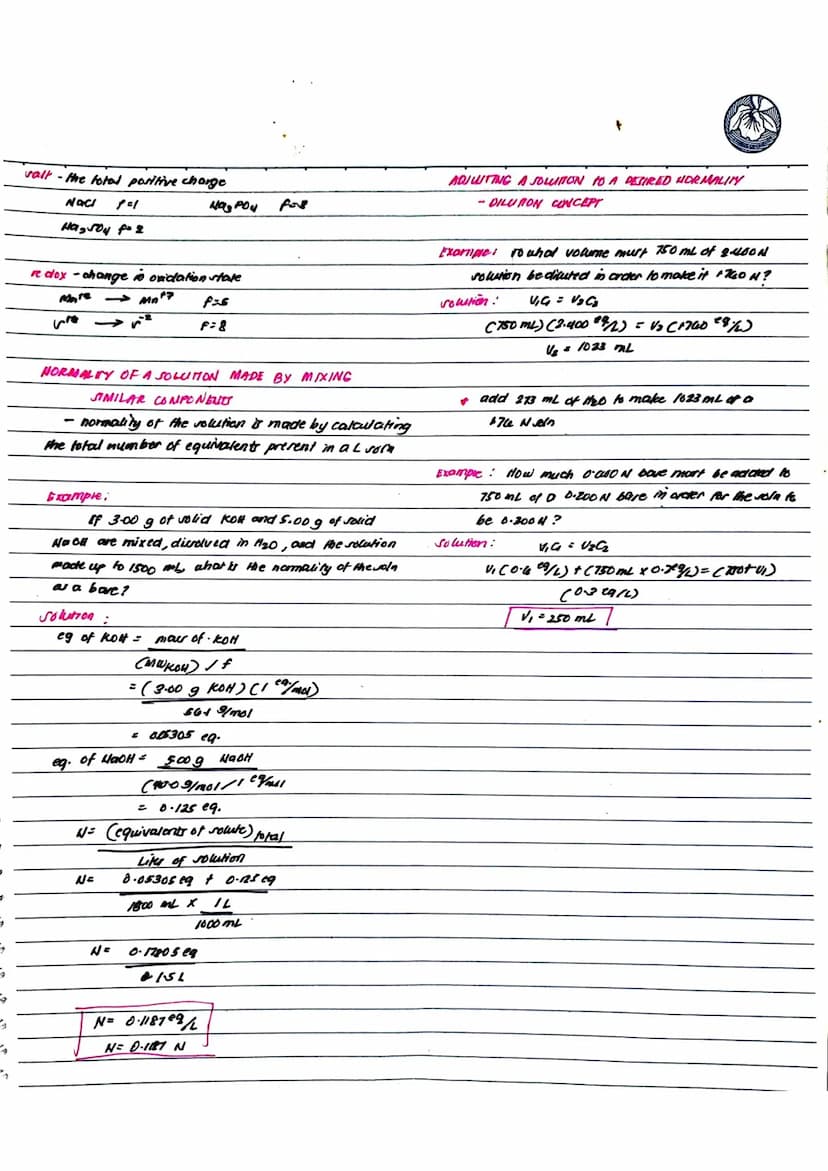 salt - the total positive charge
NaCl f=1 Na3PO4 f=3
Na2SO4 f=2
redox - change in oxidation state
Mn+2 → Mn+7 f=5
→ f=8
NORMALITY OF A SOLUTION MADE BY MIXING
SIMILAR COMPONENTS
- normality of the solution is made by calculating
the total number of equivalents present in a L soln
Example:
If 3.00 g of solid KOH and 5.00 g of solid
NaOH are mixed, dissolved in H2O, and the solution
made up to 1500 mL, what is the normality of the soln
as a base?
Solution:
eq of KOH = mass of KOH
(MWKOH) / f
= (3.00 g KOH)(1 eq/mol)
56.1 g/mol
= 0.05305 eq.
eq. of NaOH = 5.00g NaOH
(40.0 g/mol / 1 eq/mol
= 0.125 eq.
N= (equivalents of solute) total
Liter of solution
N= 0.05305 eq + 0.125 eq
1500 mL x 1L
1000 mL
N= 0.17805 eq
1.5 L
N= 0.1187 eq/L
N= 0.1187 N
ADJUSTING A SOLUTION TO A DESIRED NORMALITY
- DILUTION CONCEPT
Example: To what volume must 750 mL of 2.400 N
solution be diluted in order to make it 1.760 N?
solution: V1C1 = V2C2
(750 mL)(2.400 eq/L) = V2 (1.760 eq/L)
V2 = 1023 mL
add 273 mL of H2O to make 1023 mL of a
1.76 N soln
Example: How much 0.600 N base must be added to
750 mL of a 0.200 N base in order for the soln to
be 0.300 N?
Solution: V1C1 = V2C2
V1 (0.6 eq/L) + (750 mL x 0.2 eq/L) = (750 + V1)
(0.3 eq/L)
V1 = 250 mL